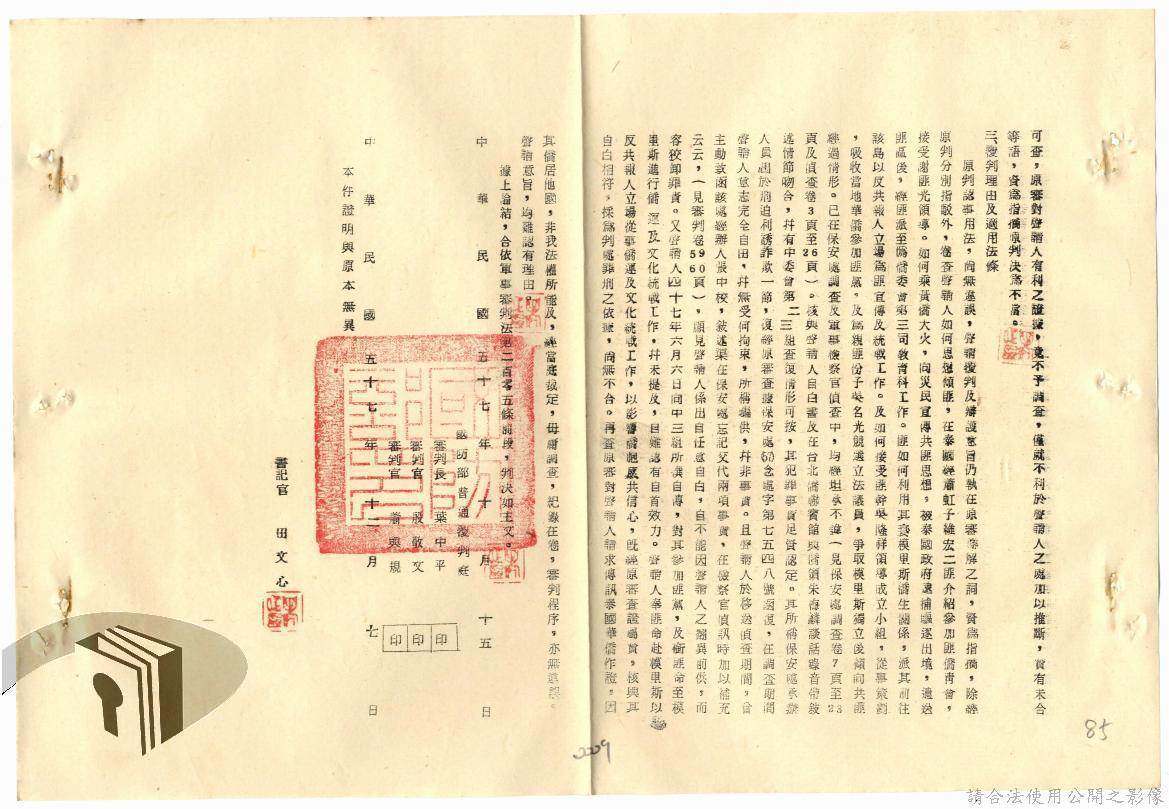 可查，原審對聲請人有利之證據，竟不予調查，僅就不利於聲請人之處加以推斷，實有未合
等語，資為指摘原判決為不當。
三、覆判理由及適用法條
原判認事用法，尚無違誤，聲請覆判及辯護意旨仍執在原審辯解之詞，資為指摘，除經
原判分別指駁外，卷查聲請人如何思想傾匪，在泰國經蕭虹子雄宏二匪介紹參加匪僑青會，
接受謝匪光領導。如何乘黃僑大火，向災民宣傳共匪思想，被泰國政府逮捕驅逐出境，遣送
匪區後，經匪派至偽僑委會第三司教育科工作。匪如何利用其妻模里斯僑生關係，派其前往
該島以反共報人立場為匪宣傳及統戰工作。及如何接受匪幹吳隆祥領導成立小組，從事策劃
，吸收當地華僑參加匪黨。及為親匪份子吳名光競選立法議員，爭取模里斯獨立後傾向共匪
經過情形。已在保安處調查及軍事檢察官偵查中，均經坦承不諱（見保安處調查卷7頁至23
頁及偵查卷3頁至26頁）。核與聲請人自白書及在台北僑鄉賓館與僑領朱壽麟談話錄音帶敘
述情節吻合，幷有中委會第二三組查復情形可按，其犯罪事實足資認定。其所稱保安處承辦
人員出於脅迫利誘詐欺一節，復經原審查據保安處60念處字第七五四八號函復，在調查期間
聲請人意志完全自由，幷無受何拘束，所稱編供，幷非事實。且聲請人於移送偵查期間，曾
主動致函該處經辦人張中校，敘述渠在保安處忘記交代兩項事實，在檢察官偵訊時加以補充
云云，（見審判卷90頁56）顯見聲請人係出自任意自白，自不能因聲請人之翻異前供，而
容狡卸罪責。又聲請人四十七年六月六日向中三組所撰自傳，對其參加匪黨，及銜匪命至模
里斯進行僑運及文化統戰工作，幷未提及，自難認有自首效力。聲請人奉匪命赴模里斯以
反共報人立場從事僑運及文化統戰工作，以影響僑胞反共信心，既經原審查證屬實，核與其
自白相符，採為判處罪刑之依據，尚無不合。再查原審對聲請人請求傳訊泰國華僑作證，因
其僑居他國，非我法權所能及，經當庭裁定，毋庸調查，紀錄在卷，審判程序，亦無違誤。
聲請意旨，均難認有理由。
據上論結，合依軍事審判法第二百零五條前段，判決如主文。
中華民國五十七年十月十五日
國防部普通覆判庭
審判長　葉中平　印
審判官　殷敬文　印
審判官　蕭典規　印
中華民國五十七年十二月七日
本件證明與原本無異
書記官　田文心
2009
85
請合法使用公開之影像